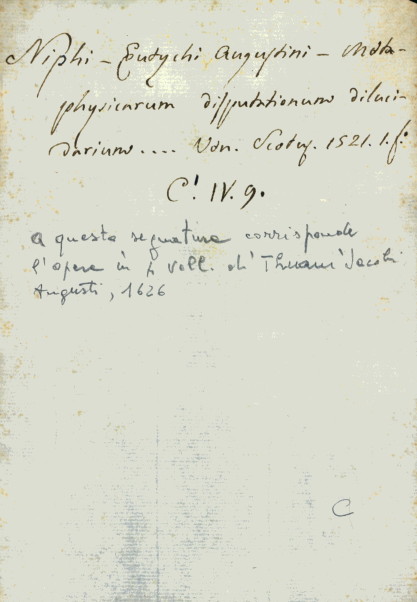 Niphi - Eutychi Augustini - Meta-
physicarum disputationum diluci-
darium.... Ven. Scotus. 1521. 1. f.º
C! IV. 9.
a questa segnatura corrisponde
l'opera in 4 voll. di Thuani Jacobi
Augusti, 1626
C